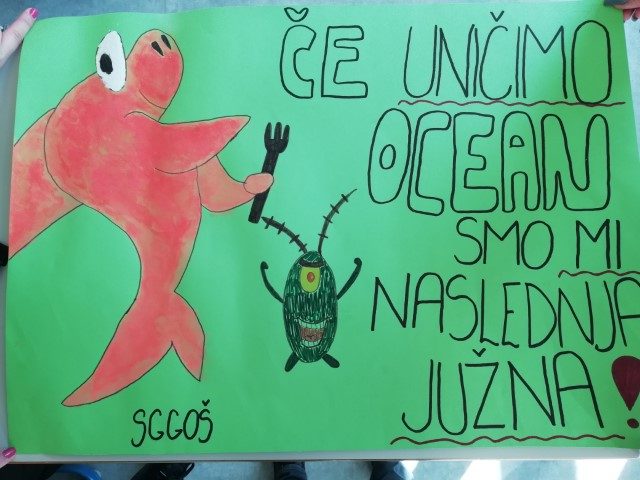 ČE UNIČIMO
OCEAN
SMO MI
NASLEDNJA
JUŽNA!
SGGOŠ